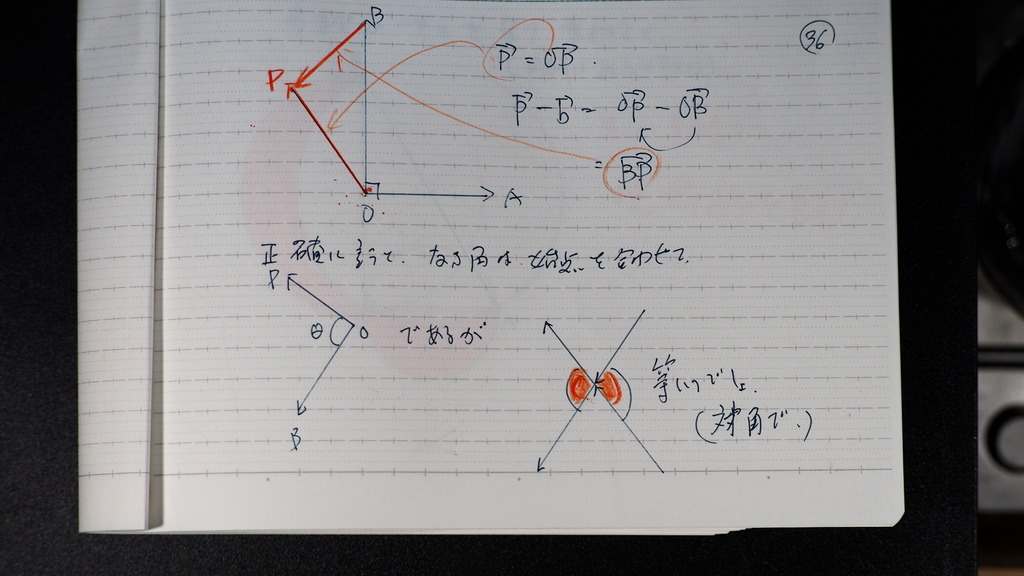 36
B
P
O
A
p⃗ = OP⃗.
p⃗ − b⃗ = OP⃗ − OB⃗
= BP⃗
正確に言うと、なす角は始点を合わせて、
P
θ
O
B
であるが
等しいでしょ.
(対角で.)